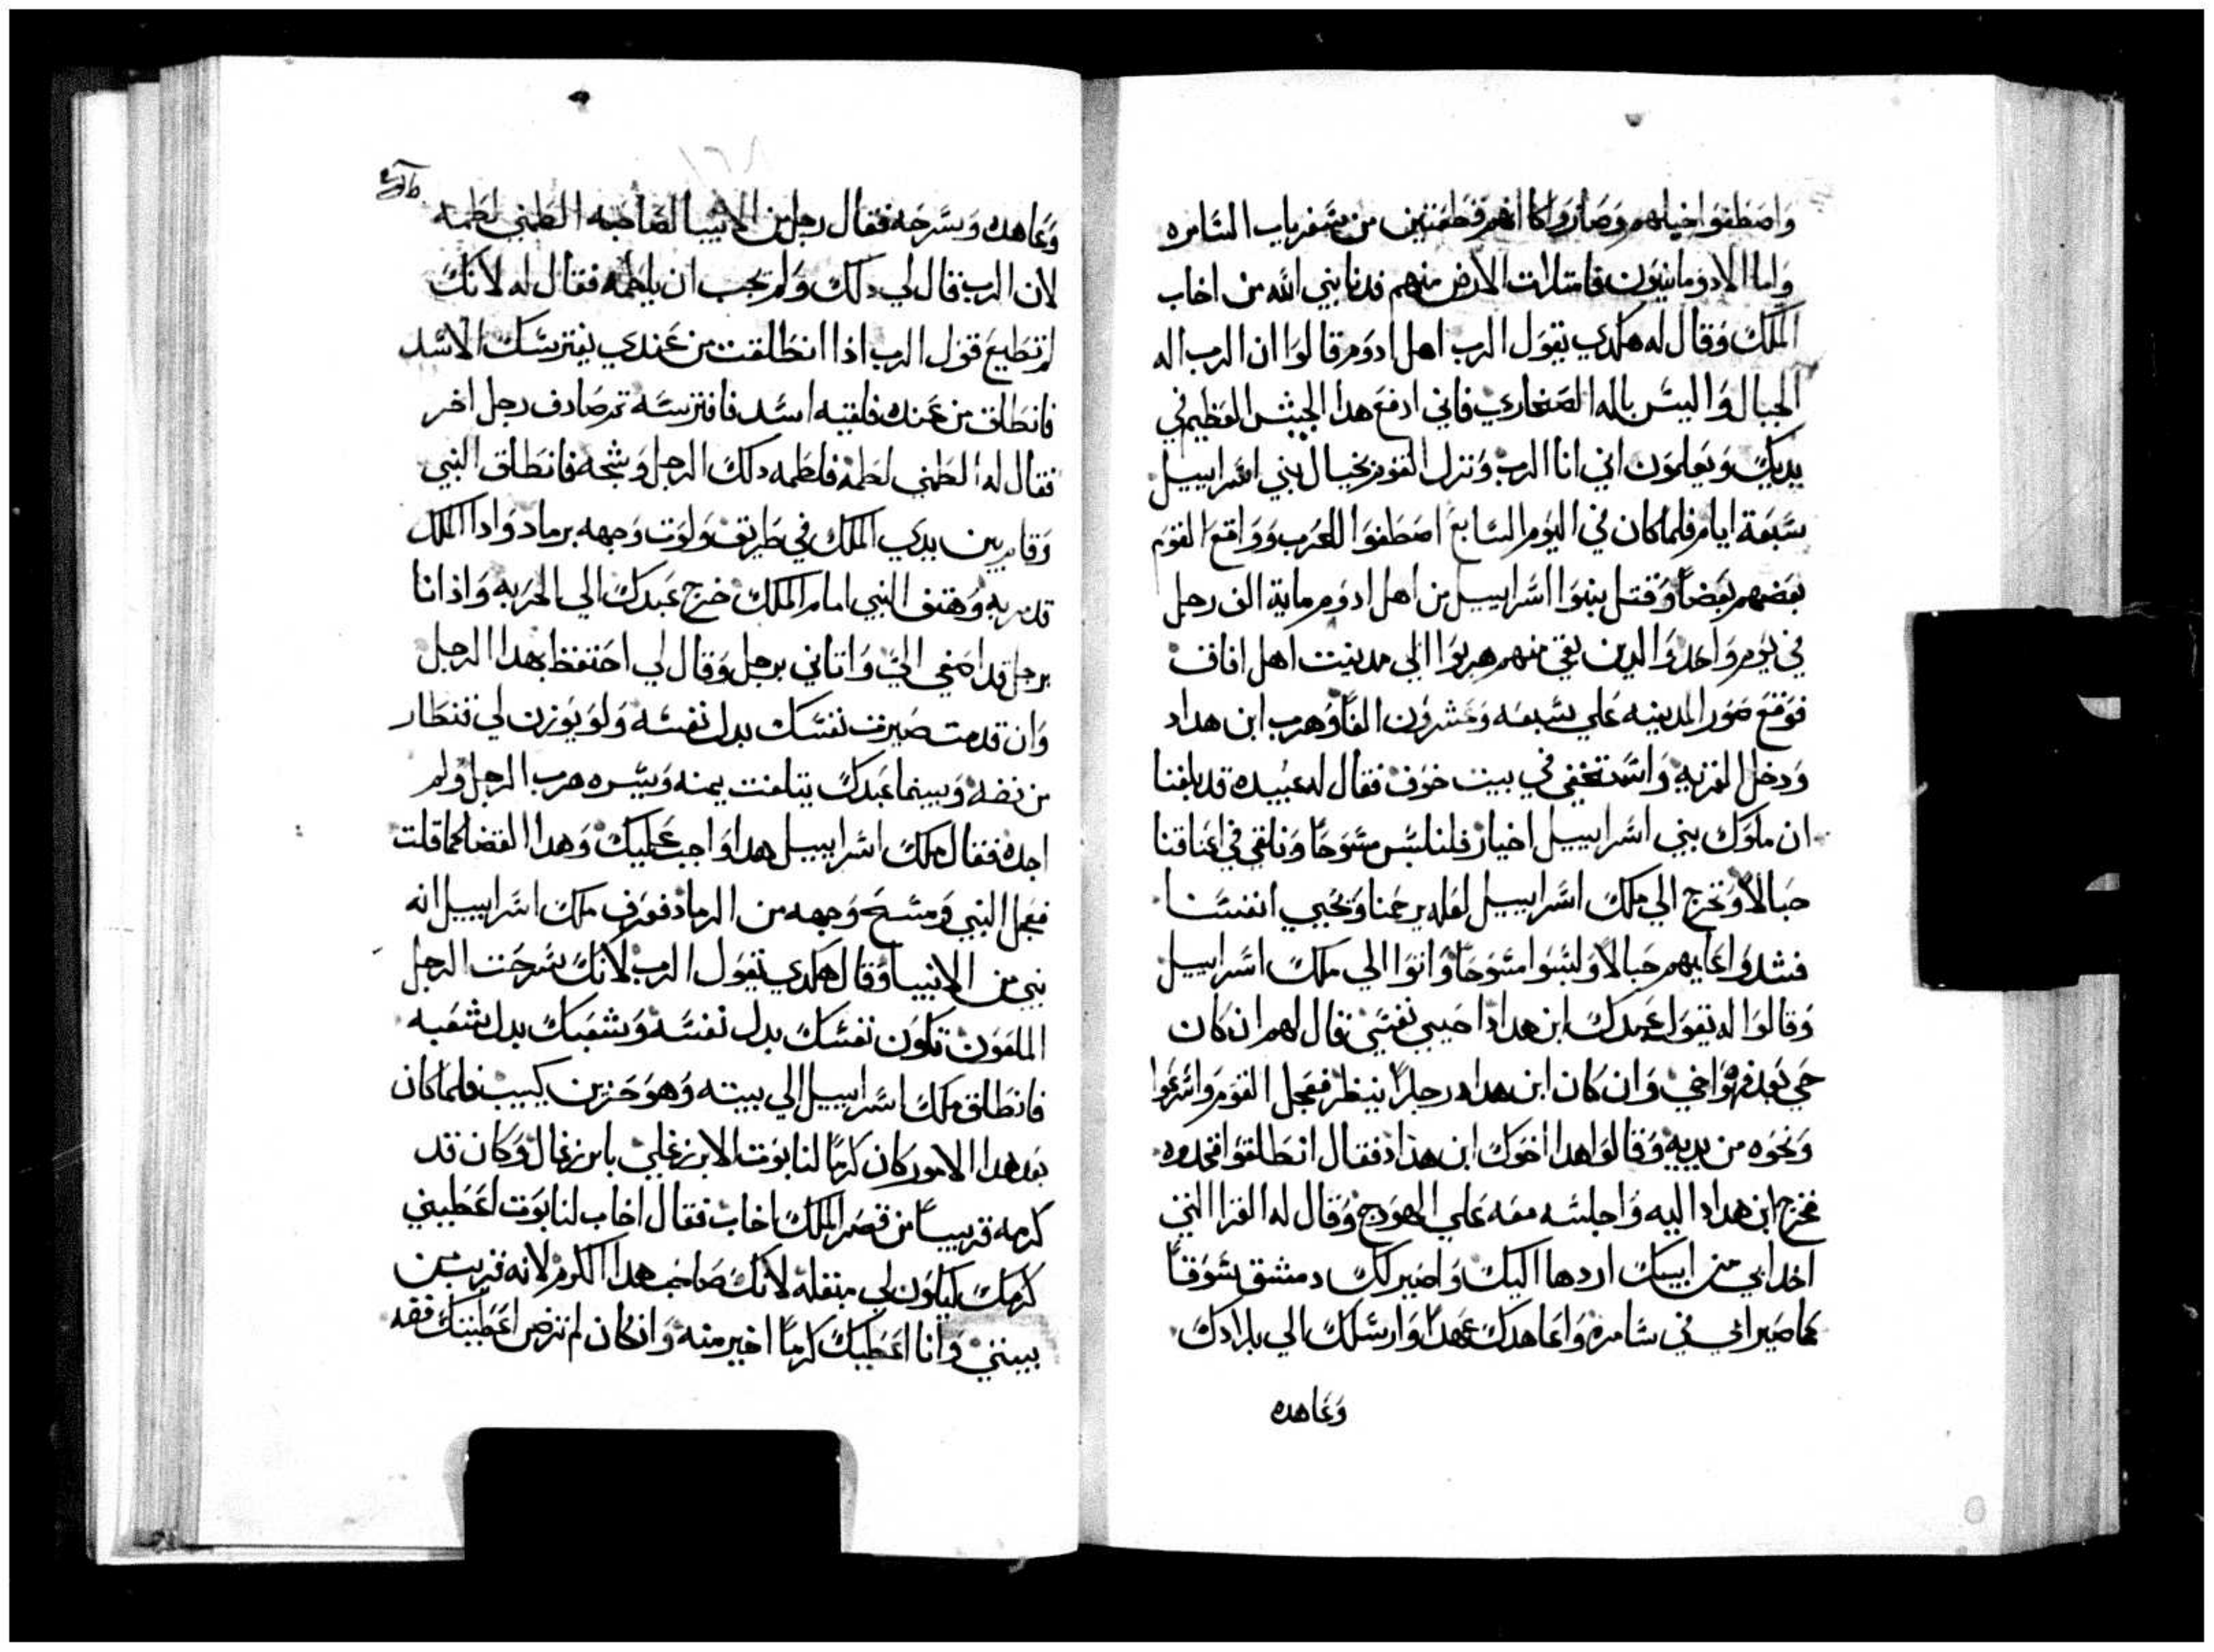 واصطفوا خيالهم وصاروا كانهم قطعتين من صغر باب السامره
واما الادومانيون فامتلات الارض منهم فدنا بني الله من اخاب
الملك وقال له هكدي يقول الرب اهل ادوم قالوا ان الرب اله
الجبال وَاليس باله الصحاري فاني ادفع هدا الجيش العظيم في
يديك ويعلمون اني انا الرب ونزل القوم بخيال بني اسراييل
سبعة ايام فلما كان في اليوم السابع اصطفوا للحرب وَوَاقع القوم
بعضهم بعضاً وَقتل بنوا اسراييل من اهل ادوم ماية الف رجل
في يوم واحد وَالدين بقي منهم هربوا الي مدينت اهل افاق
فوقع صور المدينه علي سبعه وعشرون الفاً وهرب ابن هداد
ودخل القريه وَاستخفي في بيت خوف فقال له عبيده قد بلغنا
ان ملوك بني اسراييل اخيار فلنلبس مسوحاً ونلقي في اعناقنا
حبالاً ونخرج الي ملك اسراييل لعله يرحمنا وَنحيي انفسنا
فشدوا عليهم حبالاً ولبسوا مسوحاً وَاتوا الي ملك اسراييل
وَقالوا له يقول عبدك ابن هداد احيي نفسي فقال لهم ان كان
حي بعد فهوا اخي وَان كان ابن هداد رجلاً ينظر فعجل القوم واسرعوا
وَنحوه من يديه وَقالوا هدا اخوك ابن هداد فقال انطلقوا فخدوه
فخرج ابن هداد اليه وَاجلسه معه علي الهودج وَقال له القرا التي
اخد ابي من ابيك اردها اليك وَاصير لك دمشق سوقاً
كما صير ابي في سامره وَاعاهدك عهداً وَارسلك الي بلادك
وَعاهده
وَعاهده وَسرحه فقال رجل من الانبيا لصاحبه الطمني لطمه
لان الرب قال لي دلك وَلم يحب ان يلطمه فقال له لانك
لم تطيع قول الرب اذا انطلقت من عندي يفترسك الاسد
فانطلق من عنده فلقيه اسد فافترسه ثم صادف رجل اخر
فقال له الطمني لطمه فلطمه دلك الرجل وَشجه فانطلق النبي
وَقام بين يدي الملك في طريقه وَلوت وَجهه برماد وَادا الملك
قد مر به وَهتف النبي امام الملك خرج عبدك الي الحربه وَاذ انا
برجل قد اصغي الي وَاتاني برجل وَقال لي احتفظ بهدا الرجل
وَان قدمت صيرت نفسك بدل نفسه وَلو يوزن لي قنطار
من فضه وَبينما عبدك يتلفت يمنه وَيسره هرب الرجل وَلم
اجده فقال ملك اسراييل هدا وَاجب عليك وَهدا القضا كما قلت
فعجل النبي وَمسح وَجهه من الرماد فعرف ملك اسراييل انه
نبي من الانبيا وَقال هكدي يقول الرب لانك سرحت الرجل
الملعون تكون نفسك بدل نفسه وَشعبك بدل شعبه
فانطلق ملك اسراييل الي بيته وَهو حزين كييب فلما كان
بعد هدا الامور كان كرماً لنابوت الابزرغلي بابزرغال وَكان قد
كرمه قريباً من قصر الملك اخاب فقال اخاب لنابوت اعطيني
كرمك ليكون لي مبقله لانك صاحب هدا الكرم لانه قريب من
بيتي وَانا اعطيك كرماً اخير منه وَان كان لم ترضي اعطيتك فضه